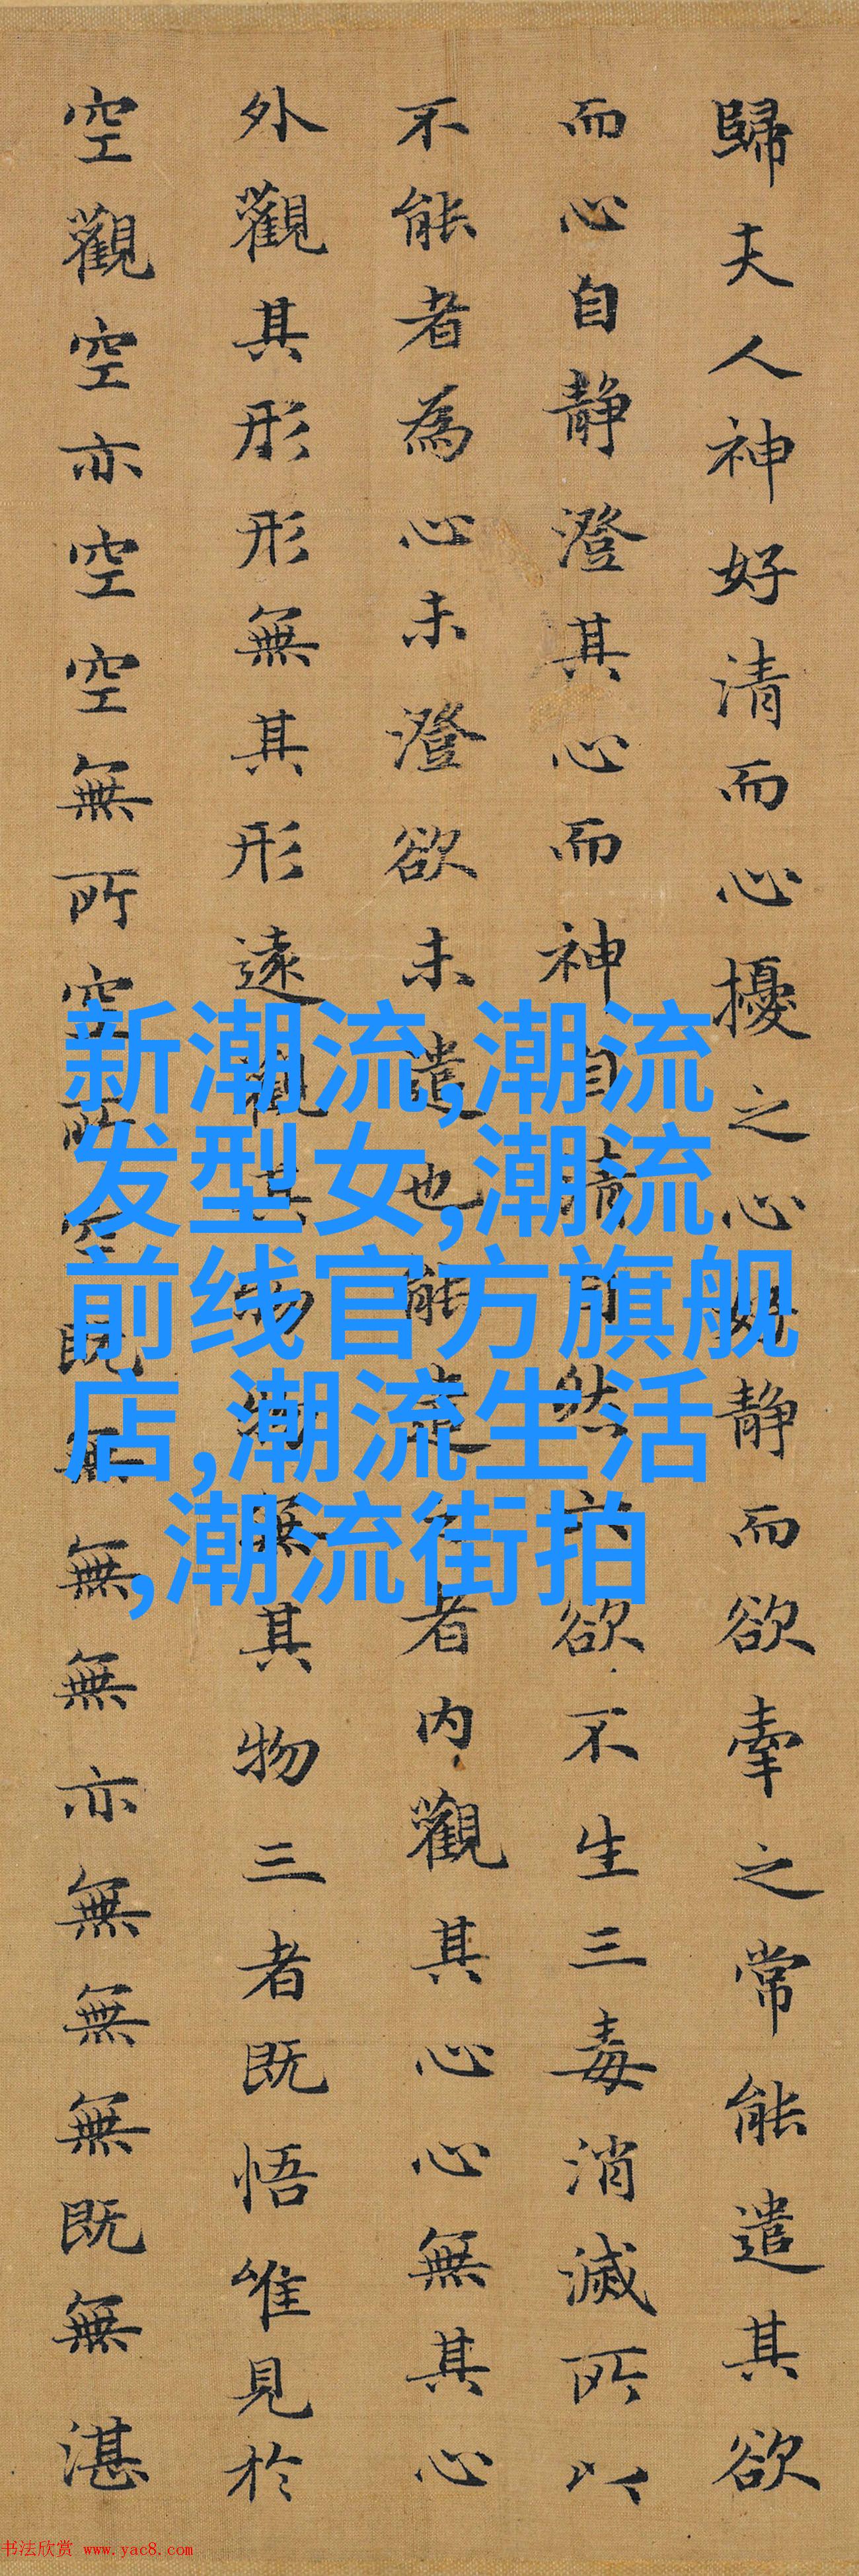 歸夫人神好清而心擾之心好静而欲牽之常能遣其欲
而心自静澄其心而神自清自然六欲不生三毒消滅所以
不能者為心未澄欲未遣也能遣之者内觀其心心無其心
外觀其形形無其形遠觀其物物無其物三者既悟唯見於
空觀空亦空空無所空所空既無無無亦無無無既無湛
新潮流,潮流
发型女,潮流
前线官方旗舰
店,潮流生活
,潮流街拍
书法欣赏 www.yac8.com